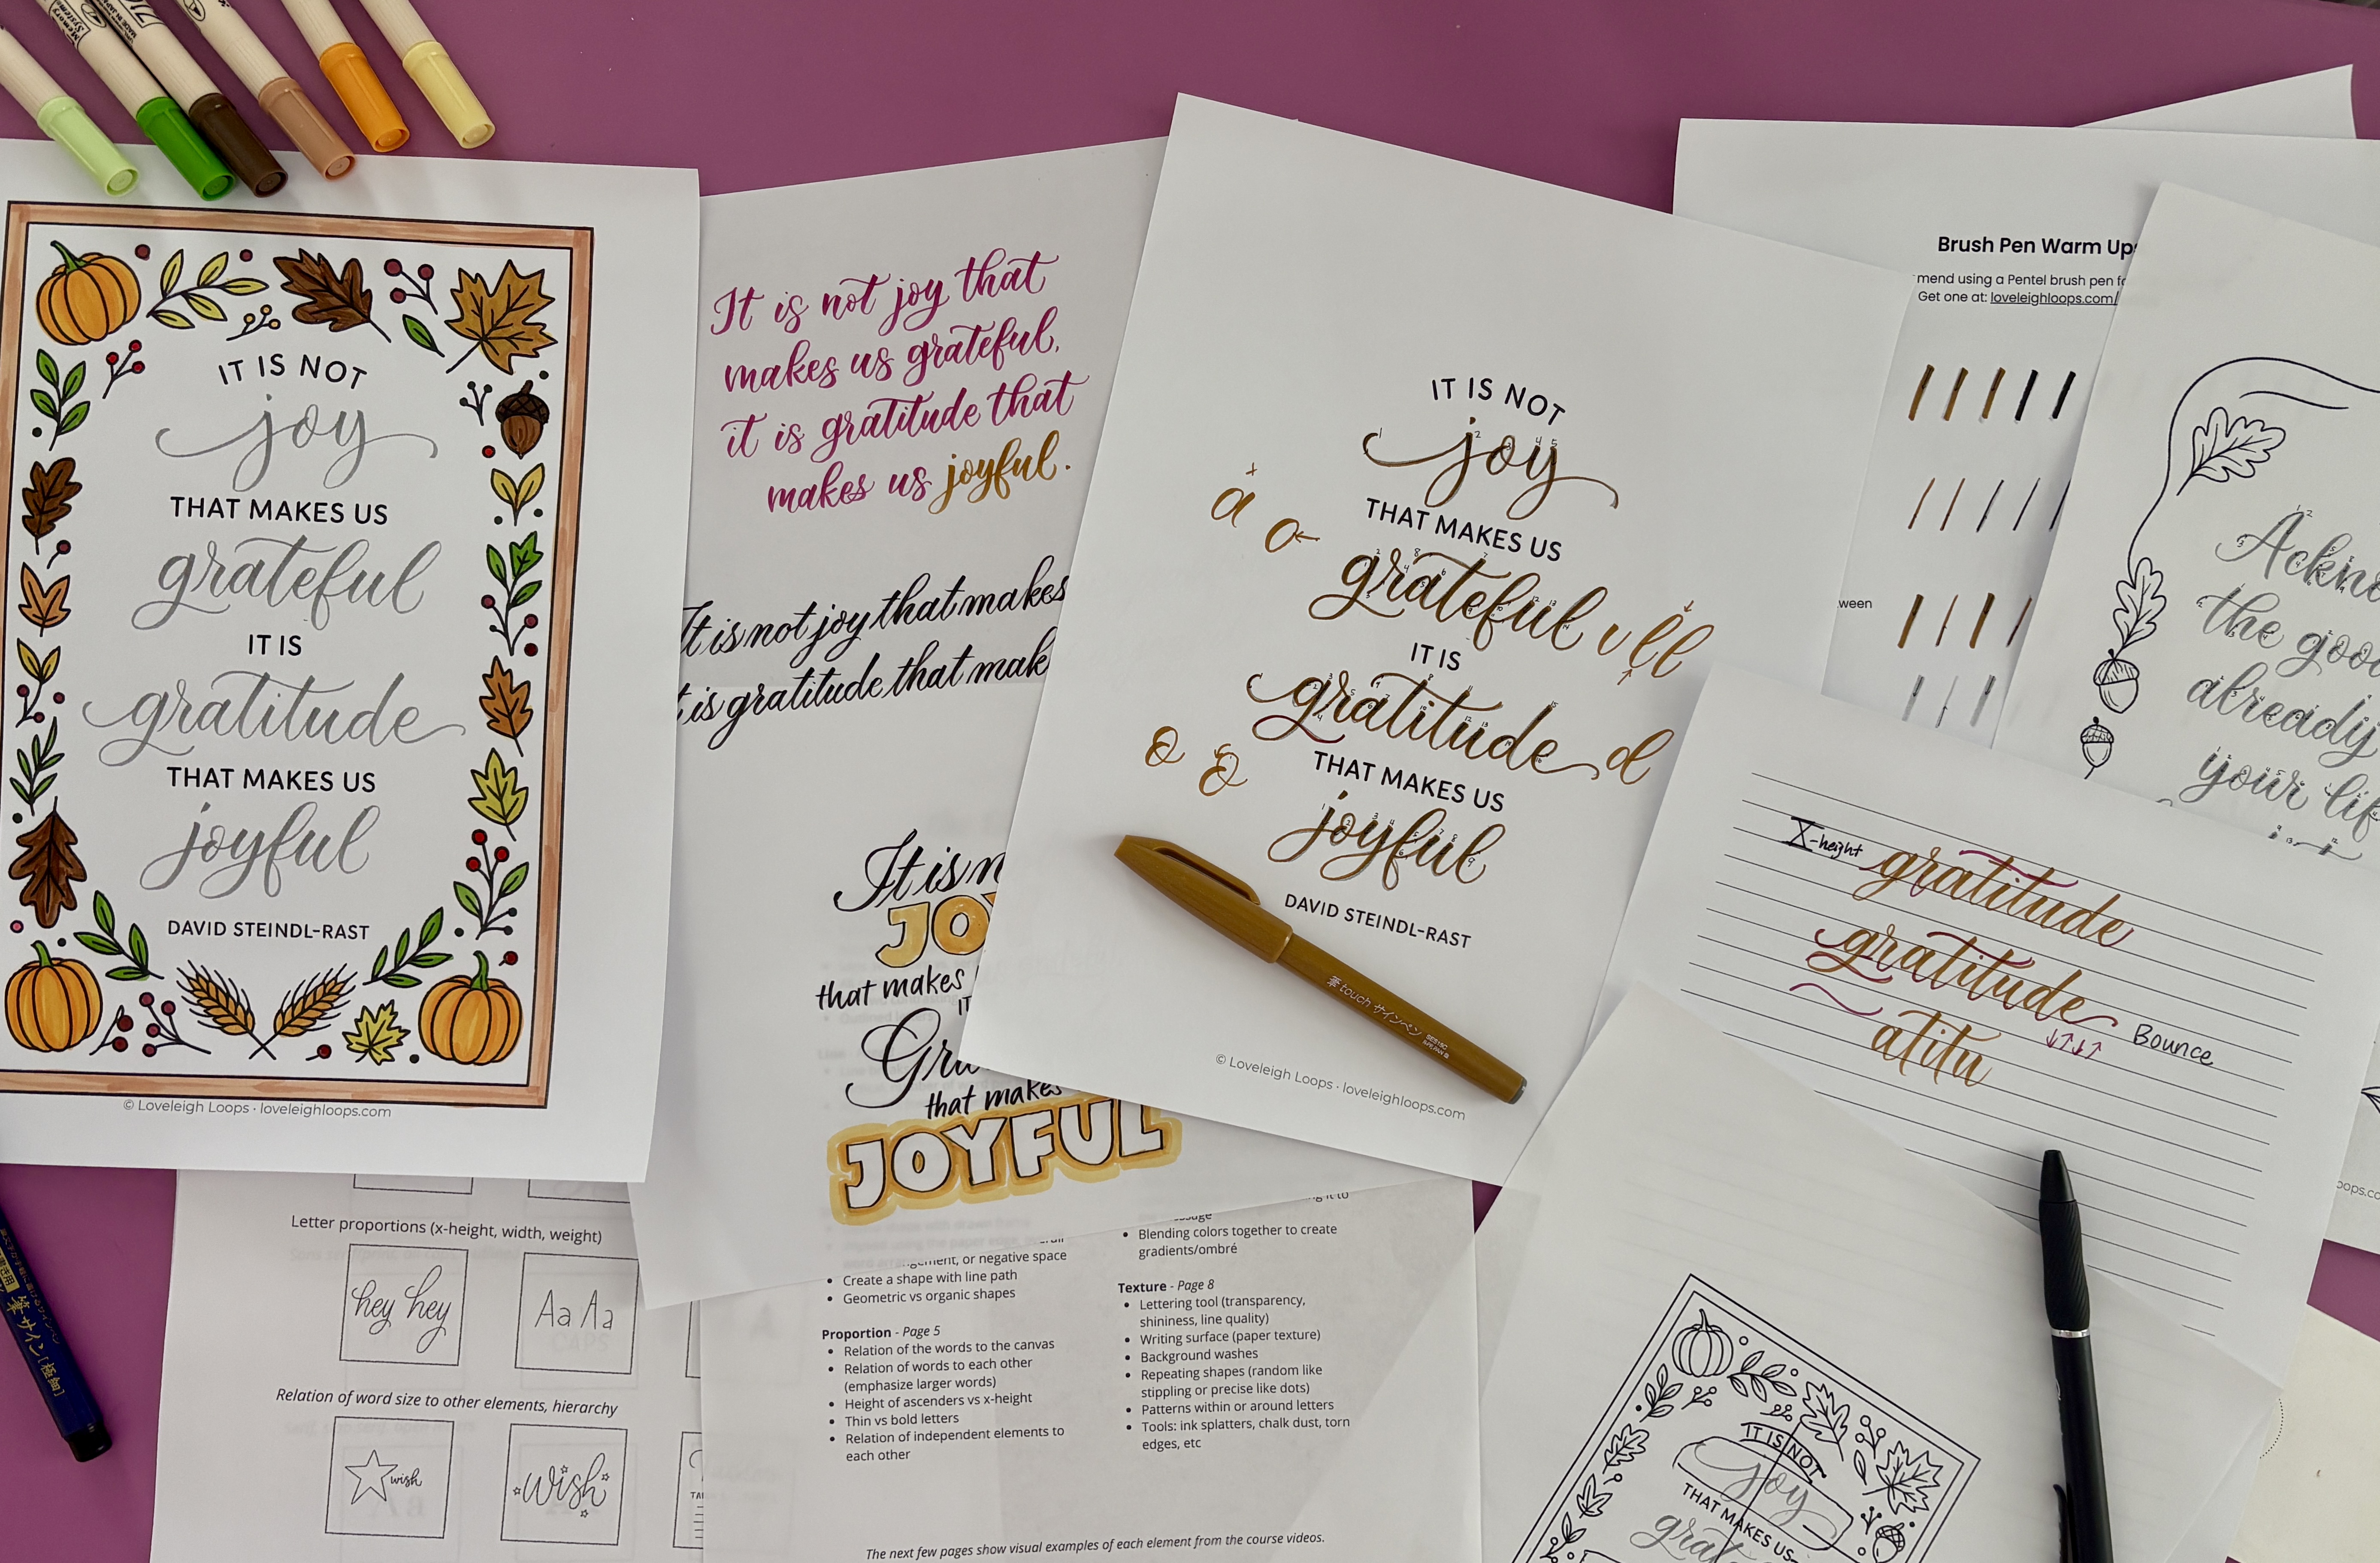 IT IS NOT
joy
THAT MAKES US
grateful
IT IS
gratitude
THAT MAKES US
joyful
DAVID STEINDL-RAST
© Loveleigh Loops · loveleighloops.com
It is not joy that
makes us grateful,
it is gratitude that
makes us joyful.
It is not joy that makes
it is gratitude that mak
It is n
JO
that makes
IT
Gra
that makes
JOYFUL
IT IS NOT
joy
THAT MAKES US
a
grateful
v l l
IT IS
gratitude d
THAT MAKES US
joyful
DAVID STEINDL-RAST
touch サインペン
© Loveleigh Loops · loveleighloops.com
Brush Pen Warm Ups
mend using a Pentel brush pen fo
Get one at: loveleighloops.com/
ween
Ackno
the goo
already
your lif
X-height gratitude
gratitude
atitu
Bounce
oops.co
Letter proportions (x-height, width, weight)
hey hey
Aa Aa
Relation of word size to other elements, hierarchy
wish
wish
or negative space
• Create a shape with line path
• Geometric vs organic shapes
Proportion - Page 5
• Relation of the words to the canvas
• Relation of words to each other
(emphasize larger words)
• Height of ascenders vs x-height
• Thin vs bold letters
• Relation of independent elements to
each other
• Blending colors together to create
gradients/ombré
Texture - Page 8
• Lettering tool (transparency,
shininess, line quality)
• Writing surface (paper texture)
• Background washes
• Repeating shapes (random like
stippling or precise like dots)
• Patterns within or around letters
• Tools: ink splatters, chalk dust, torn
edges, etc
The next few pages show visual examples of each element from the course videos.
IT IS NOT
joy
THAT MAKES US
grat